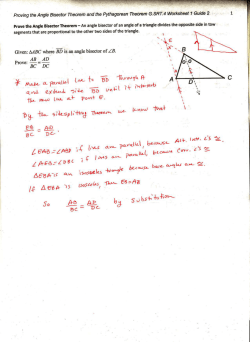 Proving the Angle Bisector Theorem and the Pythagorean Theorem G.SRT.4 Worksheet 1 Guide 2 1
Prove the Angle Bisector Theorem – An angle bisector of an angle of a triangle divides the opposite side in two
segments that are proportional to the other two sides of the triangle.
Given: ΔABC where BD is an angle bisector of ∠B.
Prove: AB/BC = AD/DC
E
B
A
D
C
* Make a parallel line to BD through A
and extend side until it intersects
the new line at point E.
By the sidesplitting theorem we know that
EB/BC = AD/DC.
∠EAB=∠ABD if lines are parallel, because Alt. Int. ∠'s ≅.
if lines are parallel, because Corr. ∠'s ≅
ΔEBA is an isosceles triangle because base angles are ≅.
If ΔEBA is isosceles, then EB=AB
So AB/BC = AD/DC by Substitution